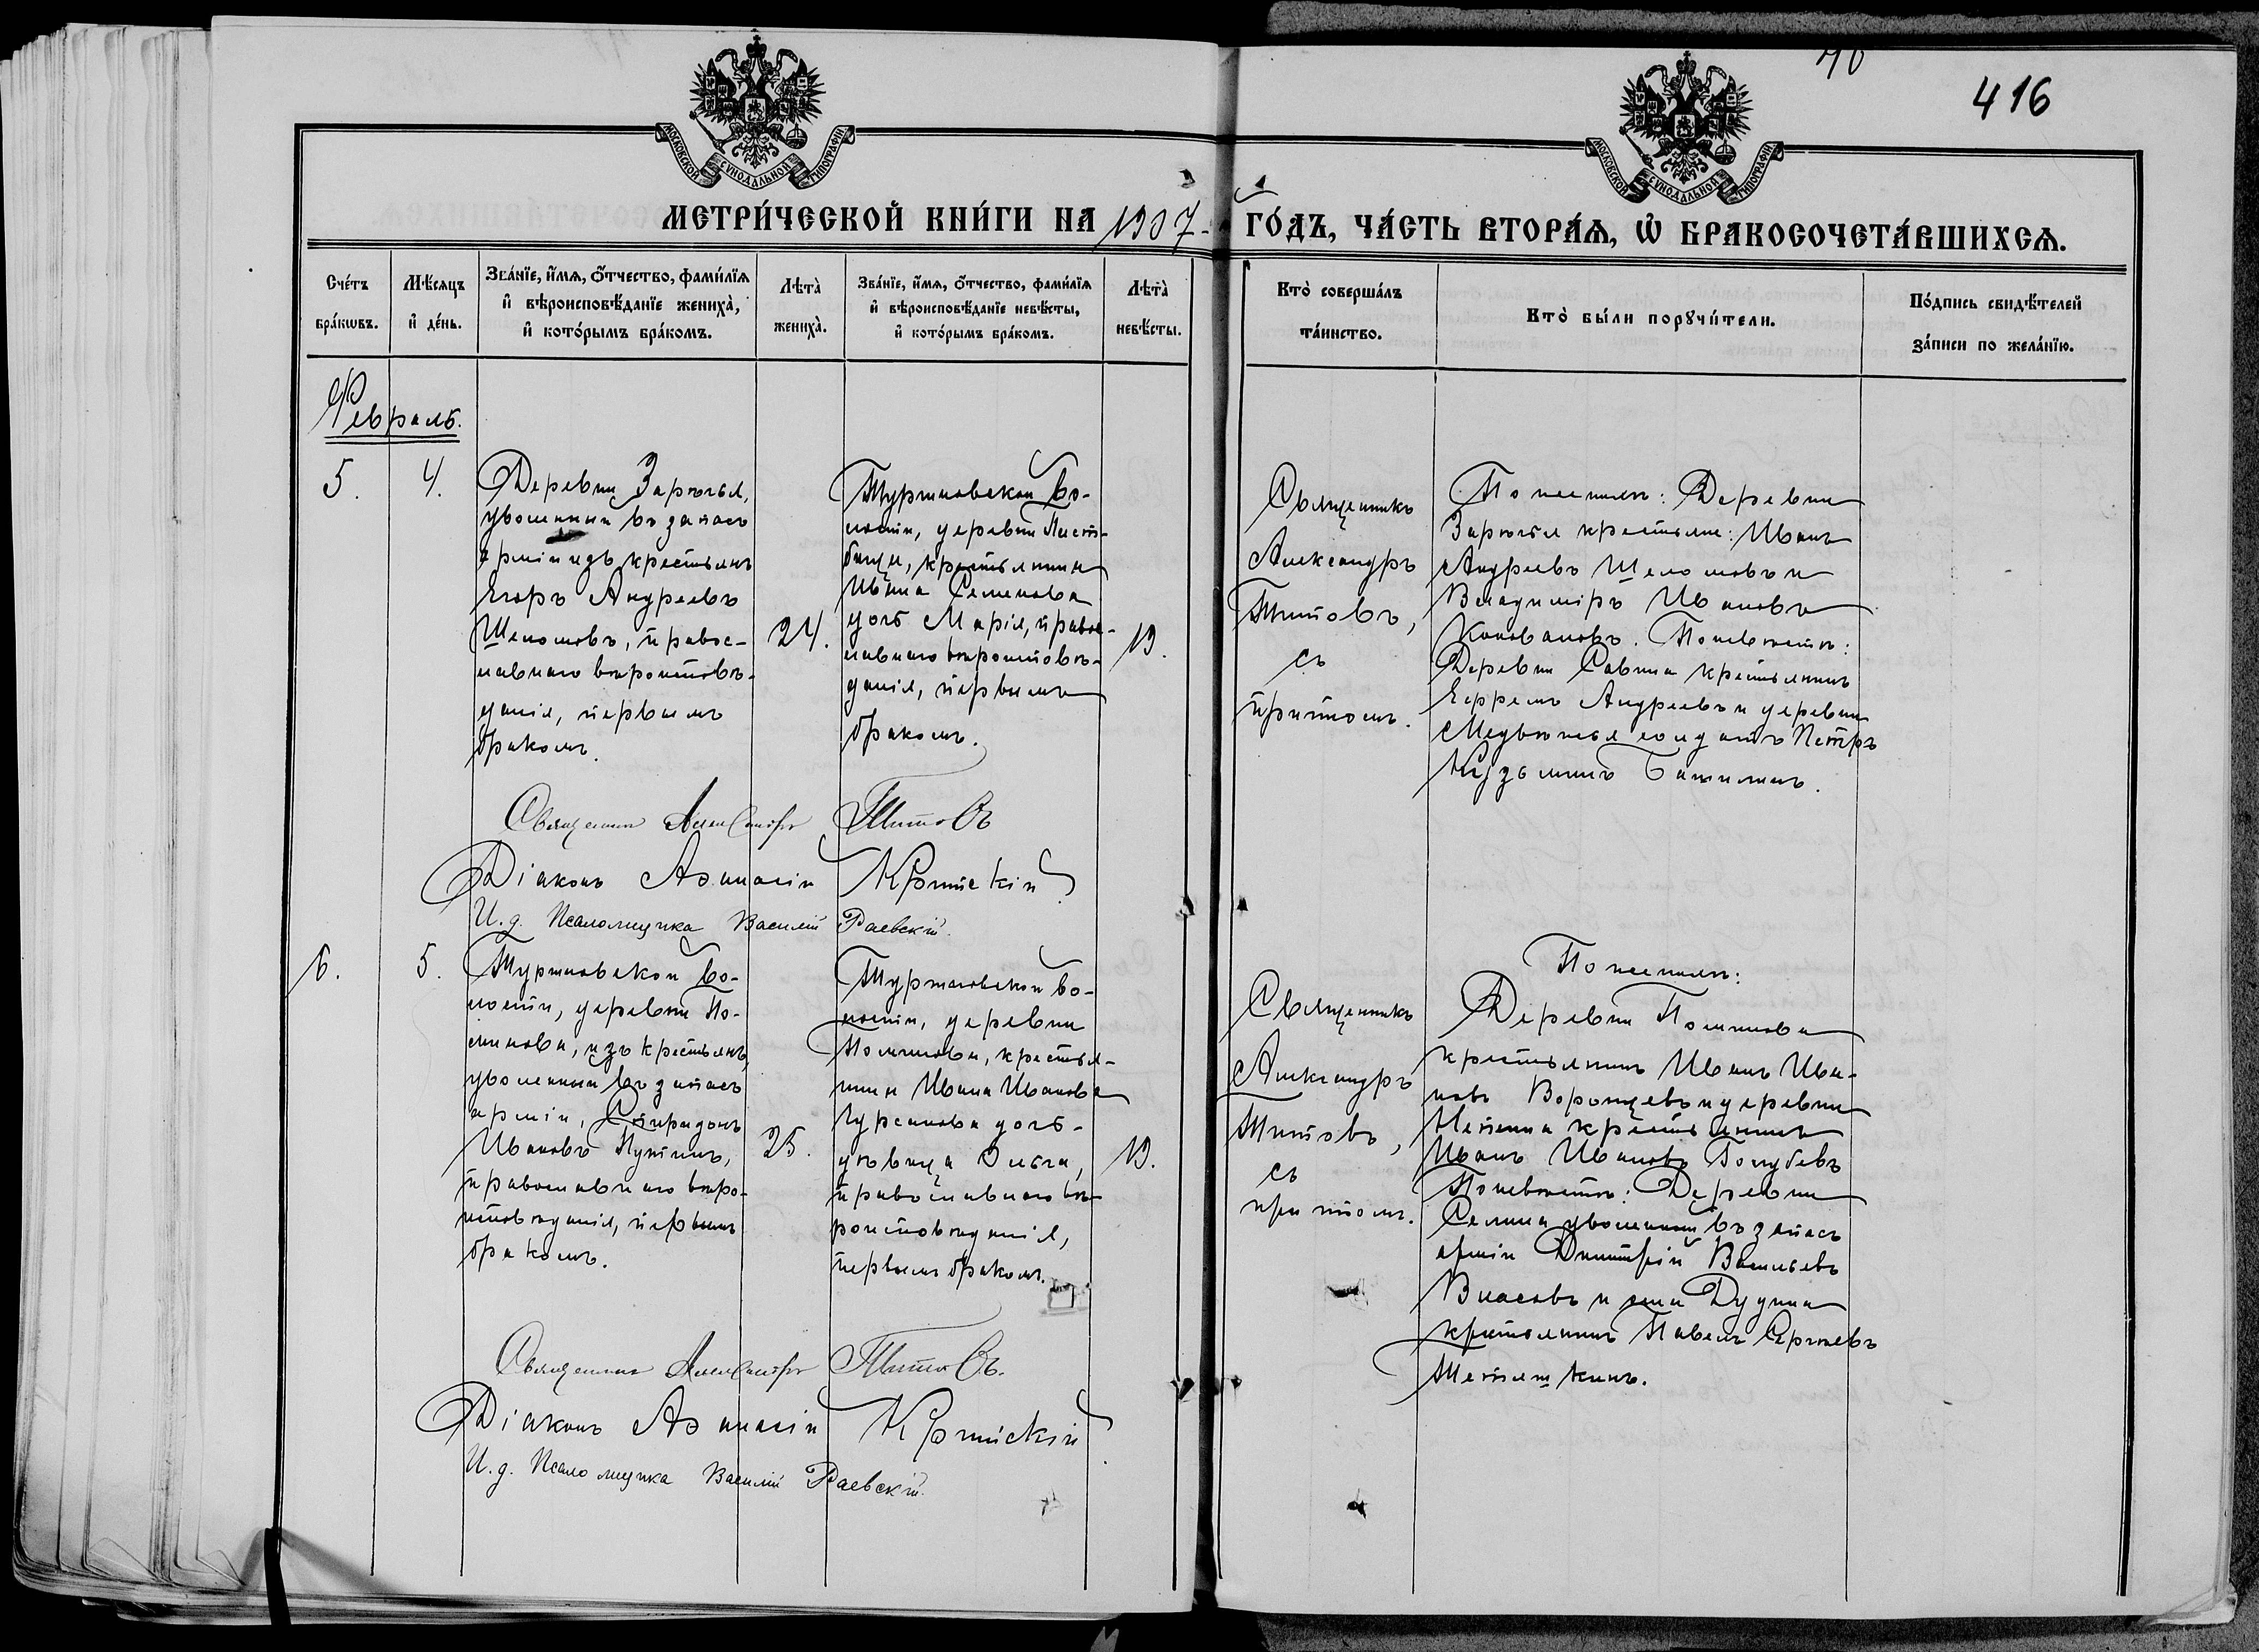 40
416
МОСКОВСКОЙ СѴНОДАЛЬНОЙ ТИПОГРАФІИ
МОСКОВСКОЙ СѴНОДАЛЬНОЙ ТИПОГРАФІИ
МЕТРИ́ЧЕСКОЙ КНИ́ГИ НА 1907 ГО́ДЪ, ЧА́СТЬ ВТОРА́Ѧ, Ѡ БРАКОСОЧЕТА́ВШИХСѦ.
Сче́тъ бра́кѡвъ.
Мѣ́сяцъ и҆ де́нь.
Зва́нїе, и҆́мѧ, ѻ҆́тчество, фами́лїѧ
и҆ вѣроисповѣ́данїе жениха̀,
и҆ кото́рымъ бра́комъ.
Лѣта̀ жениха̀.
Зва́нїе, и҆́мѧ, ѻ҆́тчество, фами́лїѧ
и҆ вѣроисповѣ́данїе невѣ́сты,
и҆ кото́рымъ бра́комъ.
Лѣта̀ невѣ́сты.
Кто̀ соверша́лъ та́инство.
Кто̀ бы́ли порꙋчи́тели.
По́дпись свидѣ́телей
за́писи по жела́нїю.
Февраль.
5.
4.
Деревни Зарѣчья,
уволенный въ запасъ
арміи изъ крестьянъ
Егоръ Андреевъ
Шеломовъ, правос-
лавнаго вѣроисповѣ-
данія, первымъ
бракомъ.
24.
Туртановской во-
лости, деревни
крестьянина
Ивана Семенова
дочь Марія, правос-
лавнаго вѣроисповѣ-
данія, первымъ
бракомъ.
19.
Священникъ
Александръ
Титовъ,
съ
причтомъ.
По женихѣ: Деревни
Зарѣчья крестьяне: Иванъ
Андреевъ Шеломовъ и
Владиміръ Ивановъ
Коноваловъ. По невѣстѣ:
Деревни Савина крестьянинъ
Ефремъ Андреевъ и деревни
солдатъ Петръ
Кузьминъ
Священникъ Александръ Титовъ
Діаконъ Аѳанасій
И. д. Псаломщика Василій Раевскій.
6.
5.
Туртановской во-
лости, деревни По-
минова, изъ крестьянъ,
уволенный въ запасъ
арміи, Спиридонъ
Ивановъ Путинъ,
православнаго вѣро-
исповѣданія, первымъ
бракомъ.
25.
Туртановской во-
лости, деревни
Поминова, крестья-
нина Ивана Иванова
Чурсанова дочь-
дѣвица Ольга,
православнаго вѣ-
роисповѣданія,
первымъ бракомъ.
19.
Священникъ
Александръ
Титовъ,
съ
причтомъ.
По женихѣ:
Деревни Поминова
крестьянинъ Иванъ Ива-
новъ Воронцевъ и деревни
крестьянинъ
Иванъ Ивановъ Голубевъ
По невѣстѣ: Деревни
Селина уволенный въ запасъ
арміи Димитрій Васильевъ
Власовъ и села Дудина
крестьянинъ Павелъ Сергѣевъ
Священникъ Александръ Титовъ.
Діаконъ Аѳанасій
И. д. Псаломщика Василій Раевскій.